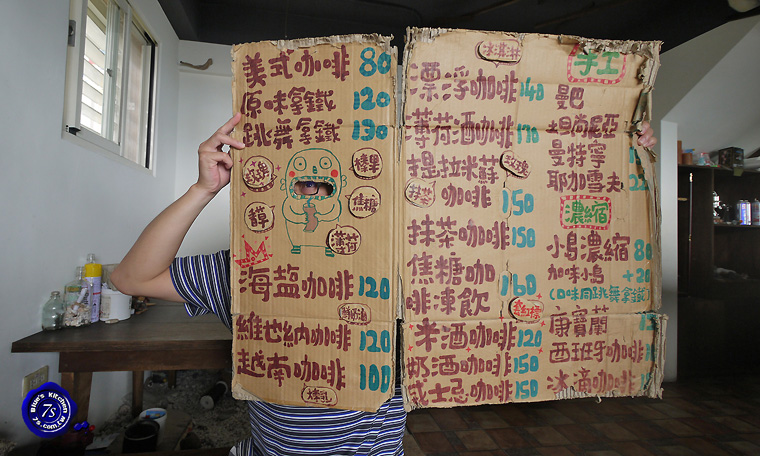 美式咖啡 80
原味拿鐵 120
跳舞拿鐵 130
榛果
焦糖
薄荷
海盐咖啡 120
維也納咖啡 120
越南咖啡 100
煉乳
冰淇淋
漂浮咖啡 140
薄荷酒咖啡 170
提拉米蘇
玫瑰
抹茶
咖啡 150
抹茶咖啡 150
焦糖咖
啡凍飲 160
米酒咖啡 120
奶酒咖啡 150
威士忌咖啡 150
手工
曼巴
坦尚尼亞
曼特寧
耶加雪夫
濃縮
小鳥濃縮 80
加味小鳥 +20
(口味同跳舞拿鐵)
康寶蘭
西班牙咖啡
冰滴咖啡
Blue's Kitchen
7s
7s.com.tw